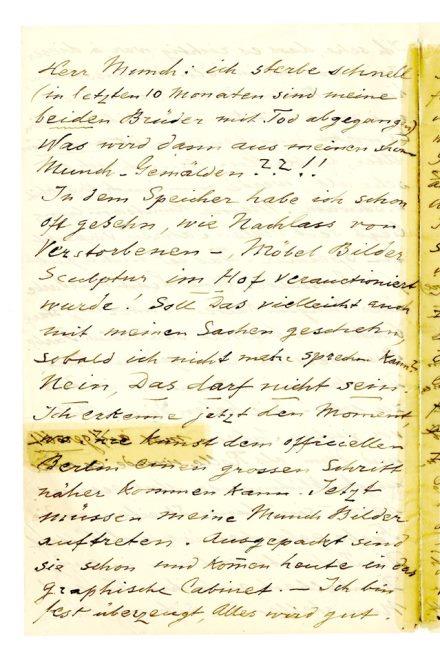 Herr Munch: ich sterbe schnell
(in letzten 10 Monaten sind meine
beiden Brüder mit Tod abgegangen)
Was wird dann aus meinen
Munch-Gemälden ??!!
In dem Speicher habe ich schon
oft gesehn, wie Nachlass von
Verstorbenen –, Möbel Bilder
Sculptur im Hof verauctioniert
wurde! Soll das vielleicht auch
mit meinen Sachen geschehn,
sobald ich nicht mehr sprechen kann?
Nein, Das darf nicht sein.
Ich erkenne jetzt den Moment,
wo Ihre Kunst dem officiellen
Berlin einen grossen Schritt
näher kommen kann. Jetzt
müssen meine Munch Bilder
auftreten. Ausgepackt sind
sie schon und kom̄en heute in das
graphische Cabinet. – Ich bin
fest überzeugt, Alles wird gut.